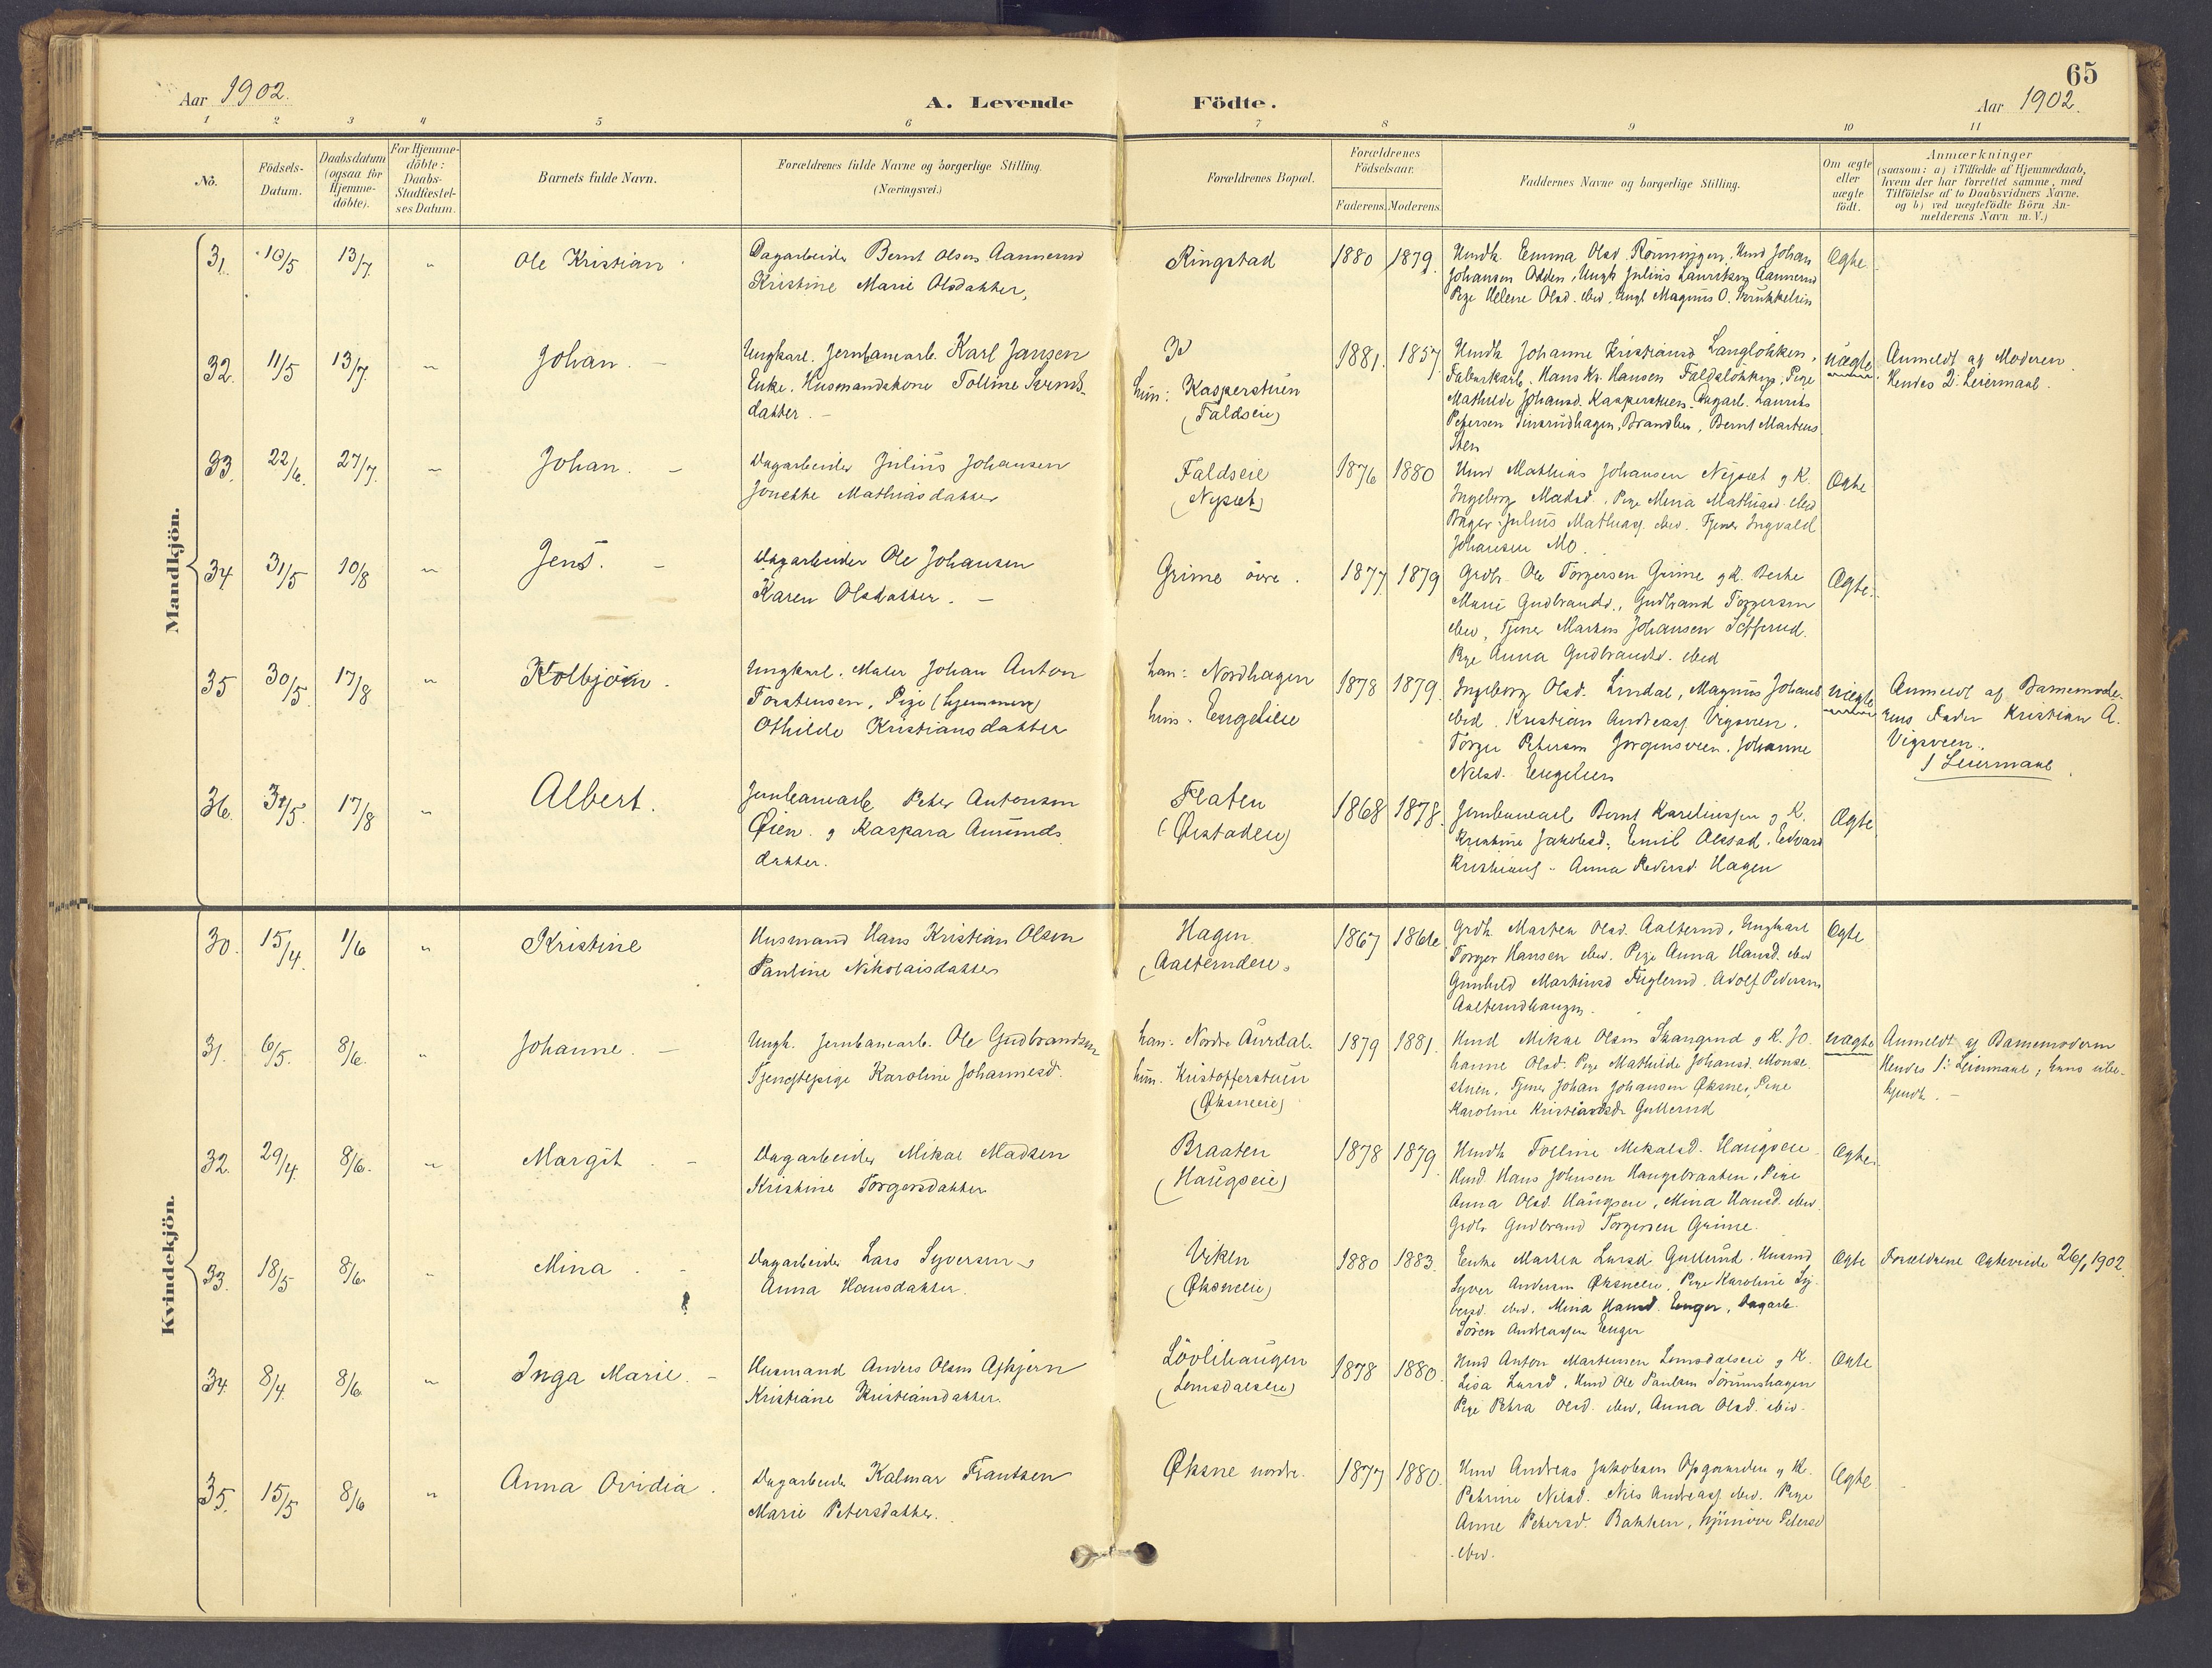 65
Aar 1902.
A. Levende Födte.
Aar 1902.
1 2 3 4 5 6 7 8 9 10 11
No.
Födsels-
Datum.
Daabsdatum
(ogsaa for
Hjemme-
döbte).
For Hjemme-
döbte:
Daabs-
Stadfæstel-
ses Datum.
Barnets fulde Navn.
Forældrenes fulde Navne og borgerlige Stilling.
(Næringsvei.)
Forældrenes Bopæl.
Forældrenes
Födselsaar.
Faderens. Moderens.
Faddernes Navne og borgerlige Stilling.
Om ægte
eller
uægte
födt.
Anmærkninger
(saasom: a) i Tilfælde af Hjemmedaab,
hvem der har forrettet samme, med
Tilföielse af to Daabsvidners Navne.
og b) ved uægtefödte Börn An-
melderens Navn m. V.)
Mandkjön.
31. 10/5 13/7 " Ole Kristian
Dagarbeider Bernt Olsen Aamerud
Kristine Marie Olsdatter,
Ringstad
1880 1879.
Kmdk. Emma Olsd. Rönningen, Kmd Johan
Johansen Odden, Ungk Julius Lauritsen Aamerud
Pige Helene Olsd. ibid, Ungk Magnus O.
Ægte.
32. 11/5 13/7. " Johan. -
Ungkarl. Jernbanearb. Karl Jansen
Enke. Husmandskone Tolline Svends-
datter. -
hun: Kasperstuen
(Faldseie)
1881. 1857.
Kmdk Johanne Kristiansd Langlökken,
Fabrikarb. Hans Kr. Hansen Faldslökken, Pige
Mathilde Johansd. Kasperstuen. Dagarb. Laurits
Petersen Finsrudhagen, Brandbu, Bernt Martins.
Sten
uægte.
Anmeldt af Moderen.
Hendes 2. Leiermaal.
33. 22/6. 27/7. " Johan. -
Dagarbeider Julius Johansen
Jonette Mathiasdatter
Faldseie
(Nysæt)
1876 1880
Kmd Mathias Johansen Nysæt g K.
Ingeborg Madsd. Pige Mina Mathiasd. ibid
Bager Julius Mathias. ibid. Tjener Ingvald
Johansen Mo.
Ægte
34 31/5 10/8 " Jens. -
Dagarbeider Ole Johansen
Karen Olsdatter. -
Grime övre.
1877 1879
Grdbr. Ole Torgersen Grime g K. Berthe
Marie Gudbrandsd., Gudbrand Torgersen
ibid, Tjener Martin Johansen
Pige Anna Gudbrandsd. ibid
Ægte.
35 30/5. 17/8 " Kolbjörn.
Ungkarl. Maler Johan Anton
Torstensen, Pige (hjemmev)
Othilde Kristiansdatter
han: Nordhagen
hun. Engelien
1878 1879.
Ingeborg Olsd. Lindal, Magnus Johans
ibid. Kristian Andreas. Vigsveen.
Torger Petersen Jörgensveen. Johanne
Nilsd. Engelien
uægte
Anmeldt af Barnemode-
rens Fader Kristian A.
Vigsveen.
1 Leiermaal.
36. 31/5. 17/8 " Albert.
Jernbanearb Peter Antonsen
Øien. g Kaspara Amunds
datter.
Flaten
(Ørstadeie)
1868 1878.
Jernbanearb Bernt Kareliussen g K.
Kristine Jakobsd. Emil Olstad. Edvard
Kristians - Anna Pedersd. Hagen
Ægte
Kvindekjön.
30. 15/4. 1/6 " Kristine
Husmand Hans Kristian Olsen
Pauline Nikolaisdatter
Hagen
(Aalterudeie)
1867 1866.
Grdk. Marten Olsd. Aalterud, Ungkarl
Torger Hansen ibid. Pige Anna Hansd. ibid
Gunhild Martinsd Fuglerud. Adolf Pedersen
Aalterudhaugen.
Ægte
31. 6/5. 8/6. " Johanne. -
Ungk. Jernbanearb. Ole Gudbrandsen
Tjenestepige Karoline Johannesd.
han: Nordre Aurdal.
hun. Kristofferstuen
(Øksneeie)
1879 1881.
Kmd Mikal Olsen Skangrud g K. Jo-
hanne Olsd. Pige Mathilde Johansd. Monse-
stuen, Tjener Johan Johansen Øksne, Pige
Karoline Kristiansd. Gullerud
uægte
Anmeldt af Barnemoderen
Hendes 1. Leiermaal; hans ube-
kjendt. -
32. 29/4. 8/6. " Margit. -
Dagarbeider Mikal Madsen
Kristine Torgersdatter
Braaten
(Haugseie)
1878 1879.
Kmdk Tolline Mikalsd. Haugseie
Kmd. Hans Johnsen Haugsbraaten, Pige
Anna Olsd. Haugseie, Mina Hansd. ibid.
Grdbr Gudbrand Torgersen Grime.
Ægte.
33. 18/5 8/6. " Mina. -
Dagarbeider Lars Syversen g
Anna Hansdatter.
Viken
(Øksneeie)
1880 1883.
Enke Marthea Larsd. Gullerud. Husmd
Syver Andersen Øksneeie, Pige Karoline Sy-
versd. ibid, Mina Hansd. Enger, Dagarb.
Sören Andreassen Enger
Ægte
Forældrene Ægteviede 26/1 1902.
34. 8/4. 8/6. " Inga Marie. -
Husmand Anders Olsen
Kristiane Kristiansdatter.
Lövlihaugen
(Lomsdalseie)
1878 1880.
Kmd Anton Martinsen Lomsdalseie g K.
Lisa Larsd, Kmd Ole Paulsen Sörumshagen
Pige Petra Olsd. ibid, Anna Olsd. ibid.
Ægte
35. 15/5 8/6 " Anna Ovidia.
Dagarbeider Kalmar Frantsen
Marie Petersdatter.
Øksne nordre.
1877 1880.
Kmd Andreas Jakobsen Opgaarden g K.
Petrine Nilsd. Nils Andreas. ibid. Pige
Anne Petersd. Bakken, Petersd
ibid.
Ægte